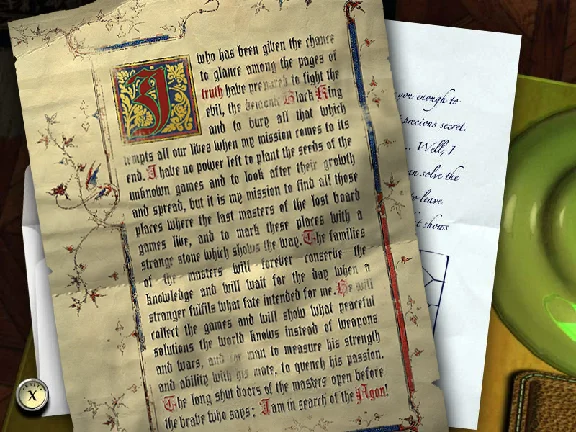 I who has been given the chance
to glance among the pages of
truth have prepared to fight the
evil, the demonic Black King
and to burn all that which
tempts all our lives when my mission comes to its
end. I have no power left to plant the seeds of the
unknown games and to look after their growth
and spread, but it is my mission to find all these
places where the last masters of the lost board
games live, and to mark these places with a
strange stone which shows the way. The families
of the masters will forever conserve the
knowledge and will wait for the day when a
stranger fulfils what fate intended for me. He will
collect the games and will show what peaceful
solutions the world knows instead of weapons
and wars, and for man to measure his strength
and ability with his mate, to quench his passion.
The long shut doors of the masters open before
the brave who says: I am in search of the Agon!
enough to
secret.
... Well, I
solve the
leave
shows
X